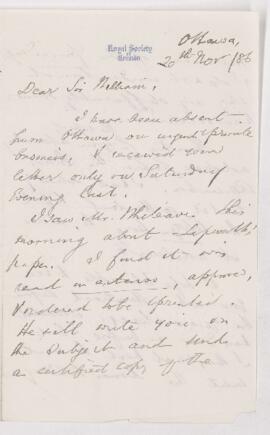 Royal Society
of
Canada
Ottawa,
20th Nov /86
Dear Sir William,
I have been absent
from Ottawa on urgent private
business. I received your
letter only on Saturday
Evening last.
I saw Mr. Whiteave this
morning about
paper. I find it was
read in extenso, approved,
& ordered to be printed.
He will write you on
the subject and send
a certified copy of the